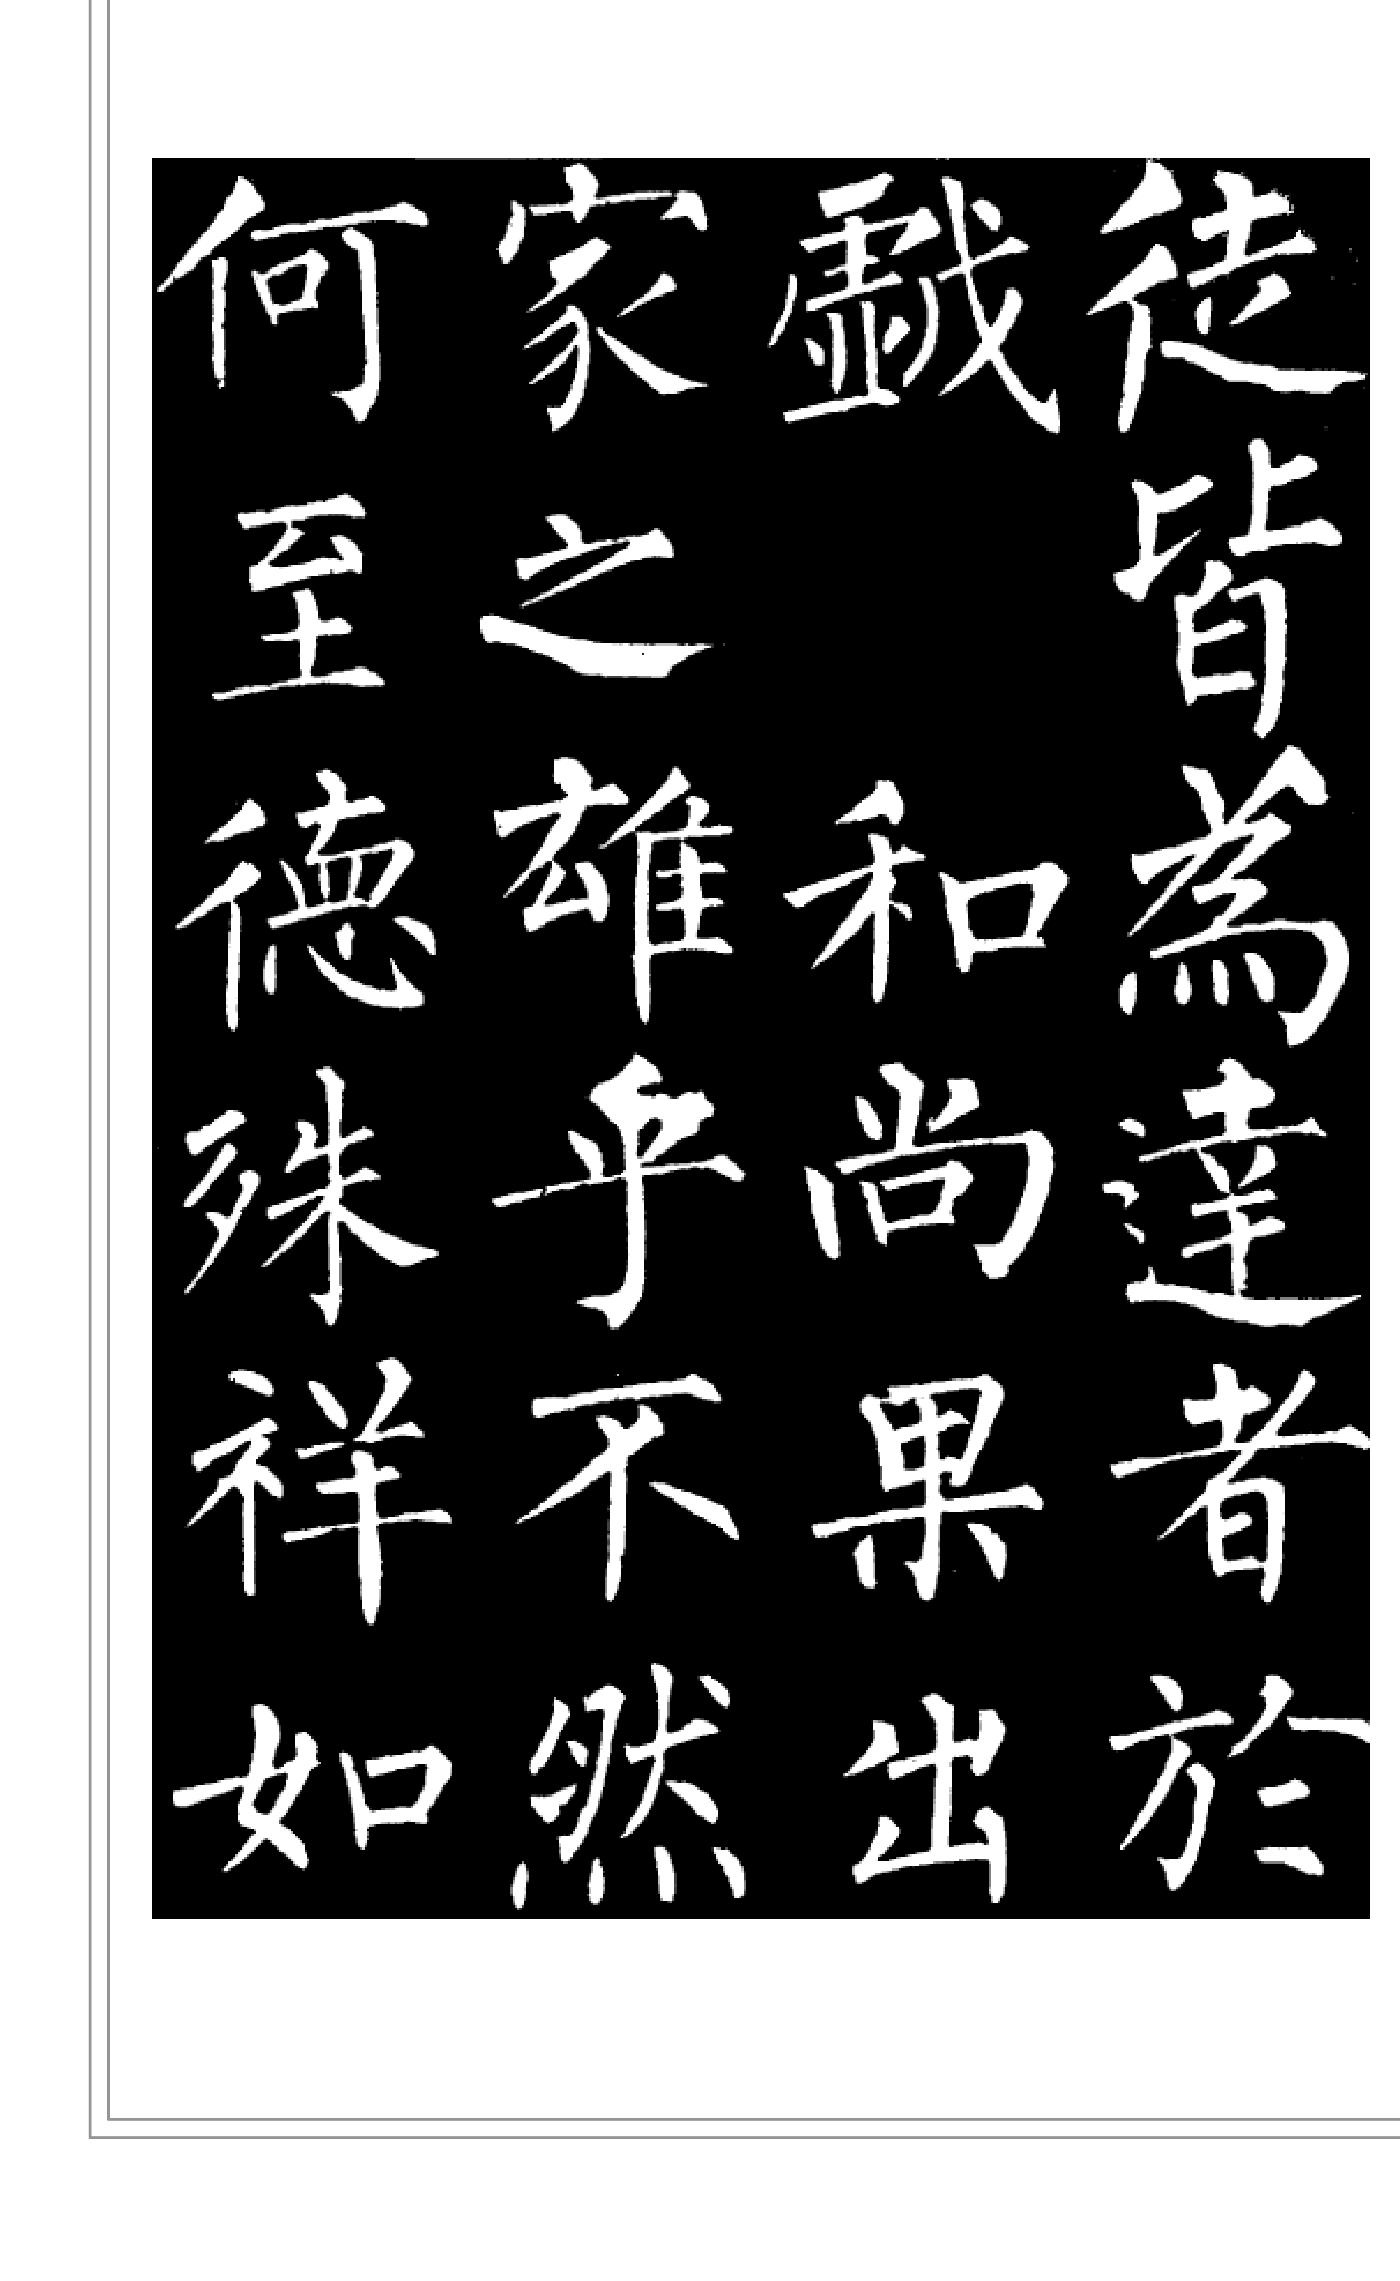 徒皆為達者於
戱 和尚果出
家之雄乎不然
何至德殊祥如